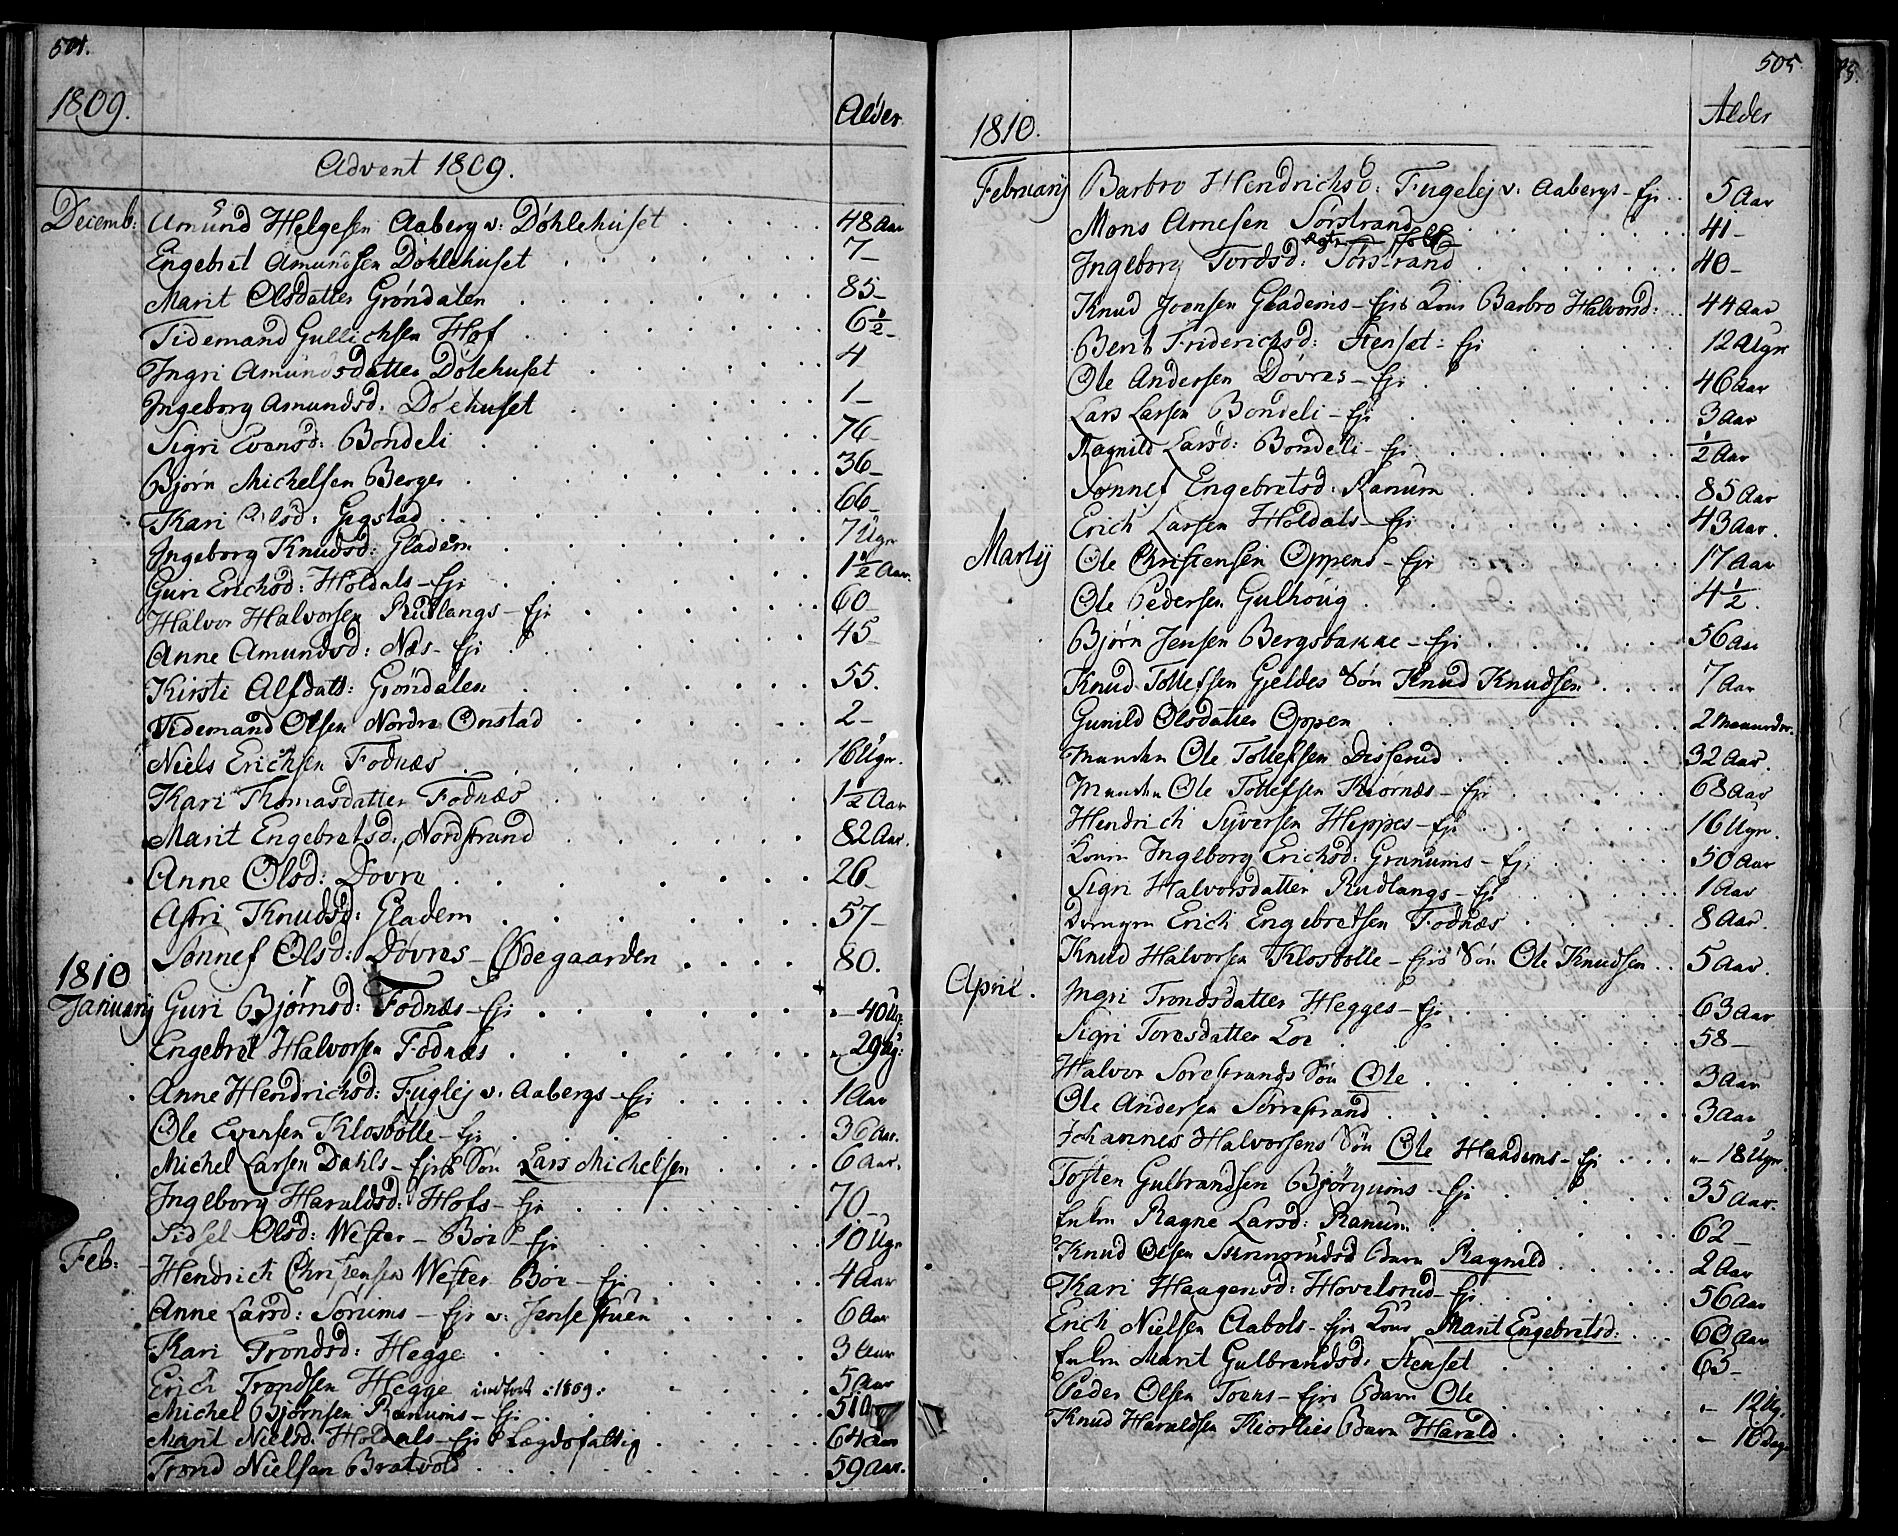 501.
1809.
Alder
Advent 1809.
Decemb: Amund Helgesen Aaberg v: Döhlehuset 48 Aar
Engebret Amundsen Döhlehuset 7-
Marit Olsdatter Gröndalen 85-
Tidemand Gullichsen Hof 6½-
Ingri Amundsdatter Dölehuset 4
Ingeborg Amundsd: Dölehuset 1-
Sigri Evensd: Bondeli 76-
Björn Michelsen Berge 36-
Kari Olsd: Gigstad 66-
Ingeborg Knudsd: Gladem 7 Ugr
Guri Erichsd: Holdals-Eji 1½ Aar.
Halvor Halvorsen Rudlangs-Eji 60
Anne Amundsd: Næs-Eji 45
Kirsti Alfdatt: Gröndalen 55.
Tidemand Olsen Nordre Onstad 2-
Niels Erichsen Fodnæs 16 Ugr.
Kari Thomasdatter Fodnæs 1½ Aar
Marit Engebretsd: Nordstrand 82 Aar.
Anne Olsd: Dövre 26-
Astri Knudsd: Gladem 57-
Sönnef Olsd: Dövres-Ødegaarden 80.
1810
Januarij Guri Björnsd: Fodnæs-Eji „- 40 Ug:
Engebret Halvorsen Fodnæs „ 29 Ug:
Anne Hendrichsd: Fuglej v: Aabergs-Eji 1 Aar
Ole Evensen Klosbölle-Eji 36 Aar.
Michel Larsen Dahls-Ejes Sön Lars Michelsen 6 Aar.
Ingeborg Haraldsd: Hofs-Eji 70-
Sidsel Olsd: Wester-Böe-Eji 10 Ugr
Feb: Hendrich Christensen Wester Böe-Eji 4 Aar
Anne Larsd: Sörums-Eji v: Jensestuen 6 Aar
Kari Trondsd: Hegge 3 Aar
Erich Trondsen Hegge indfört: 1809: 5 Aar
Michel Björnsen Ranums-Eji 51 Aar
Marit Nielsd: Holdals-Eji Lægdsfattig 64 Aar
Trond Nielsen Bratvold 59 Aar.
505
1810.
Alder
Februarij Barbro Hendrichsd: Fugelej v: Aabergs-Eji 5 Aar
Mons Arnesen Sörstrand 41-
Ingeborg Tordsd: Sörstrand 40-
Knud Joensen Gladems-Ejes Kone Barbro Halvorsd: 44 Aar
Berit Friderichsd: Stenset: Eji 12 Ugr
Ole Andersen Dövres-Eji 46 Aar
Lars Larsen Bondeli-Eji 3 Aar
Ragnild Larsd: Bondeli-Eji ½ Aar
Sönnef Engebretsd: Ranum 85 Aar
Erich Larsen Holdals-Eji 43 Aar.
Martij Ole Christensen Oppens-Eji 17 Aar
Ole Pedersen Gulhoug 4½.
Björn Jensen Bergsbakke-Eji 56 Aar
Knud Tollefsen Gjeldes Sön Knud Knudsen 7 Aar
Gunild Olsdatter Oppen 2 Maaneder.
Manden Ole Tollefsen Disserud 32 Aar.
Manden Ole Tollefsen Kiörnæs-Eji 68 Aar
Hendrich Syversen Hegges-Eji 16 Ugr.
Konen Ingeborg Erichsd: Granums-Eji 50 Aar
Sigri Halvorsdatter Rudlangs-Eji 1 Aar
Drengen Erich Engebretsen Fodnæs 8 Aar.
Knud Halvorsen Klosbölle-Ejes Sön Ole Knudsen 5 Aar.
April. Ingri Trondsdatter Hegges-Eji 63 Aar
Sigri Toresdatter Loe 58-
Halvor Sörestrands Sön Ole 3 Aar
Ole Andersen Sörrestrand 3 Aar
Johannes Halvorsens Sön Ole Haadems-Eji „- 18 Ugr.
Tosten Gulbrandsen Björgums-Eji 35 Aar.
Enken Ragne Larsd: Ranum 62-
Knud Olsen Barn Ragnild 2 Aar
Kari Haagensd: Hovelsrud-Eji 56 Aar
Erich Nielsen Aabols-Ejes Kone Marit Engebretsd: 60 Aar
Enken Marit Gulbrandsd: Stenset 63-
Peder Olsen Toens-Ejes Barn Ole „- 12 Ug.
Knud Haraldsen Kiorlies Barn Harald „- 10 Dage